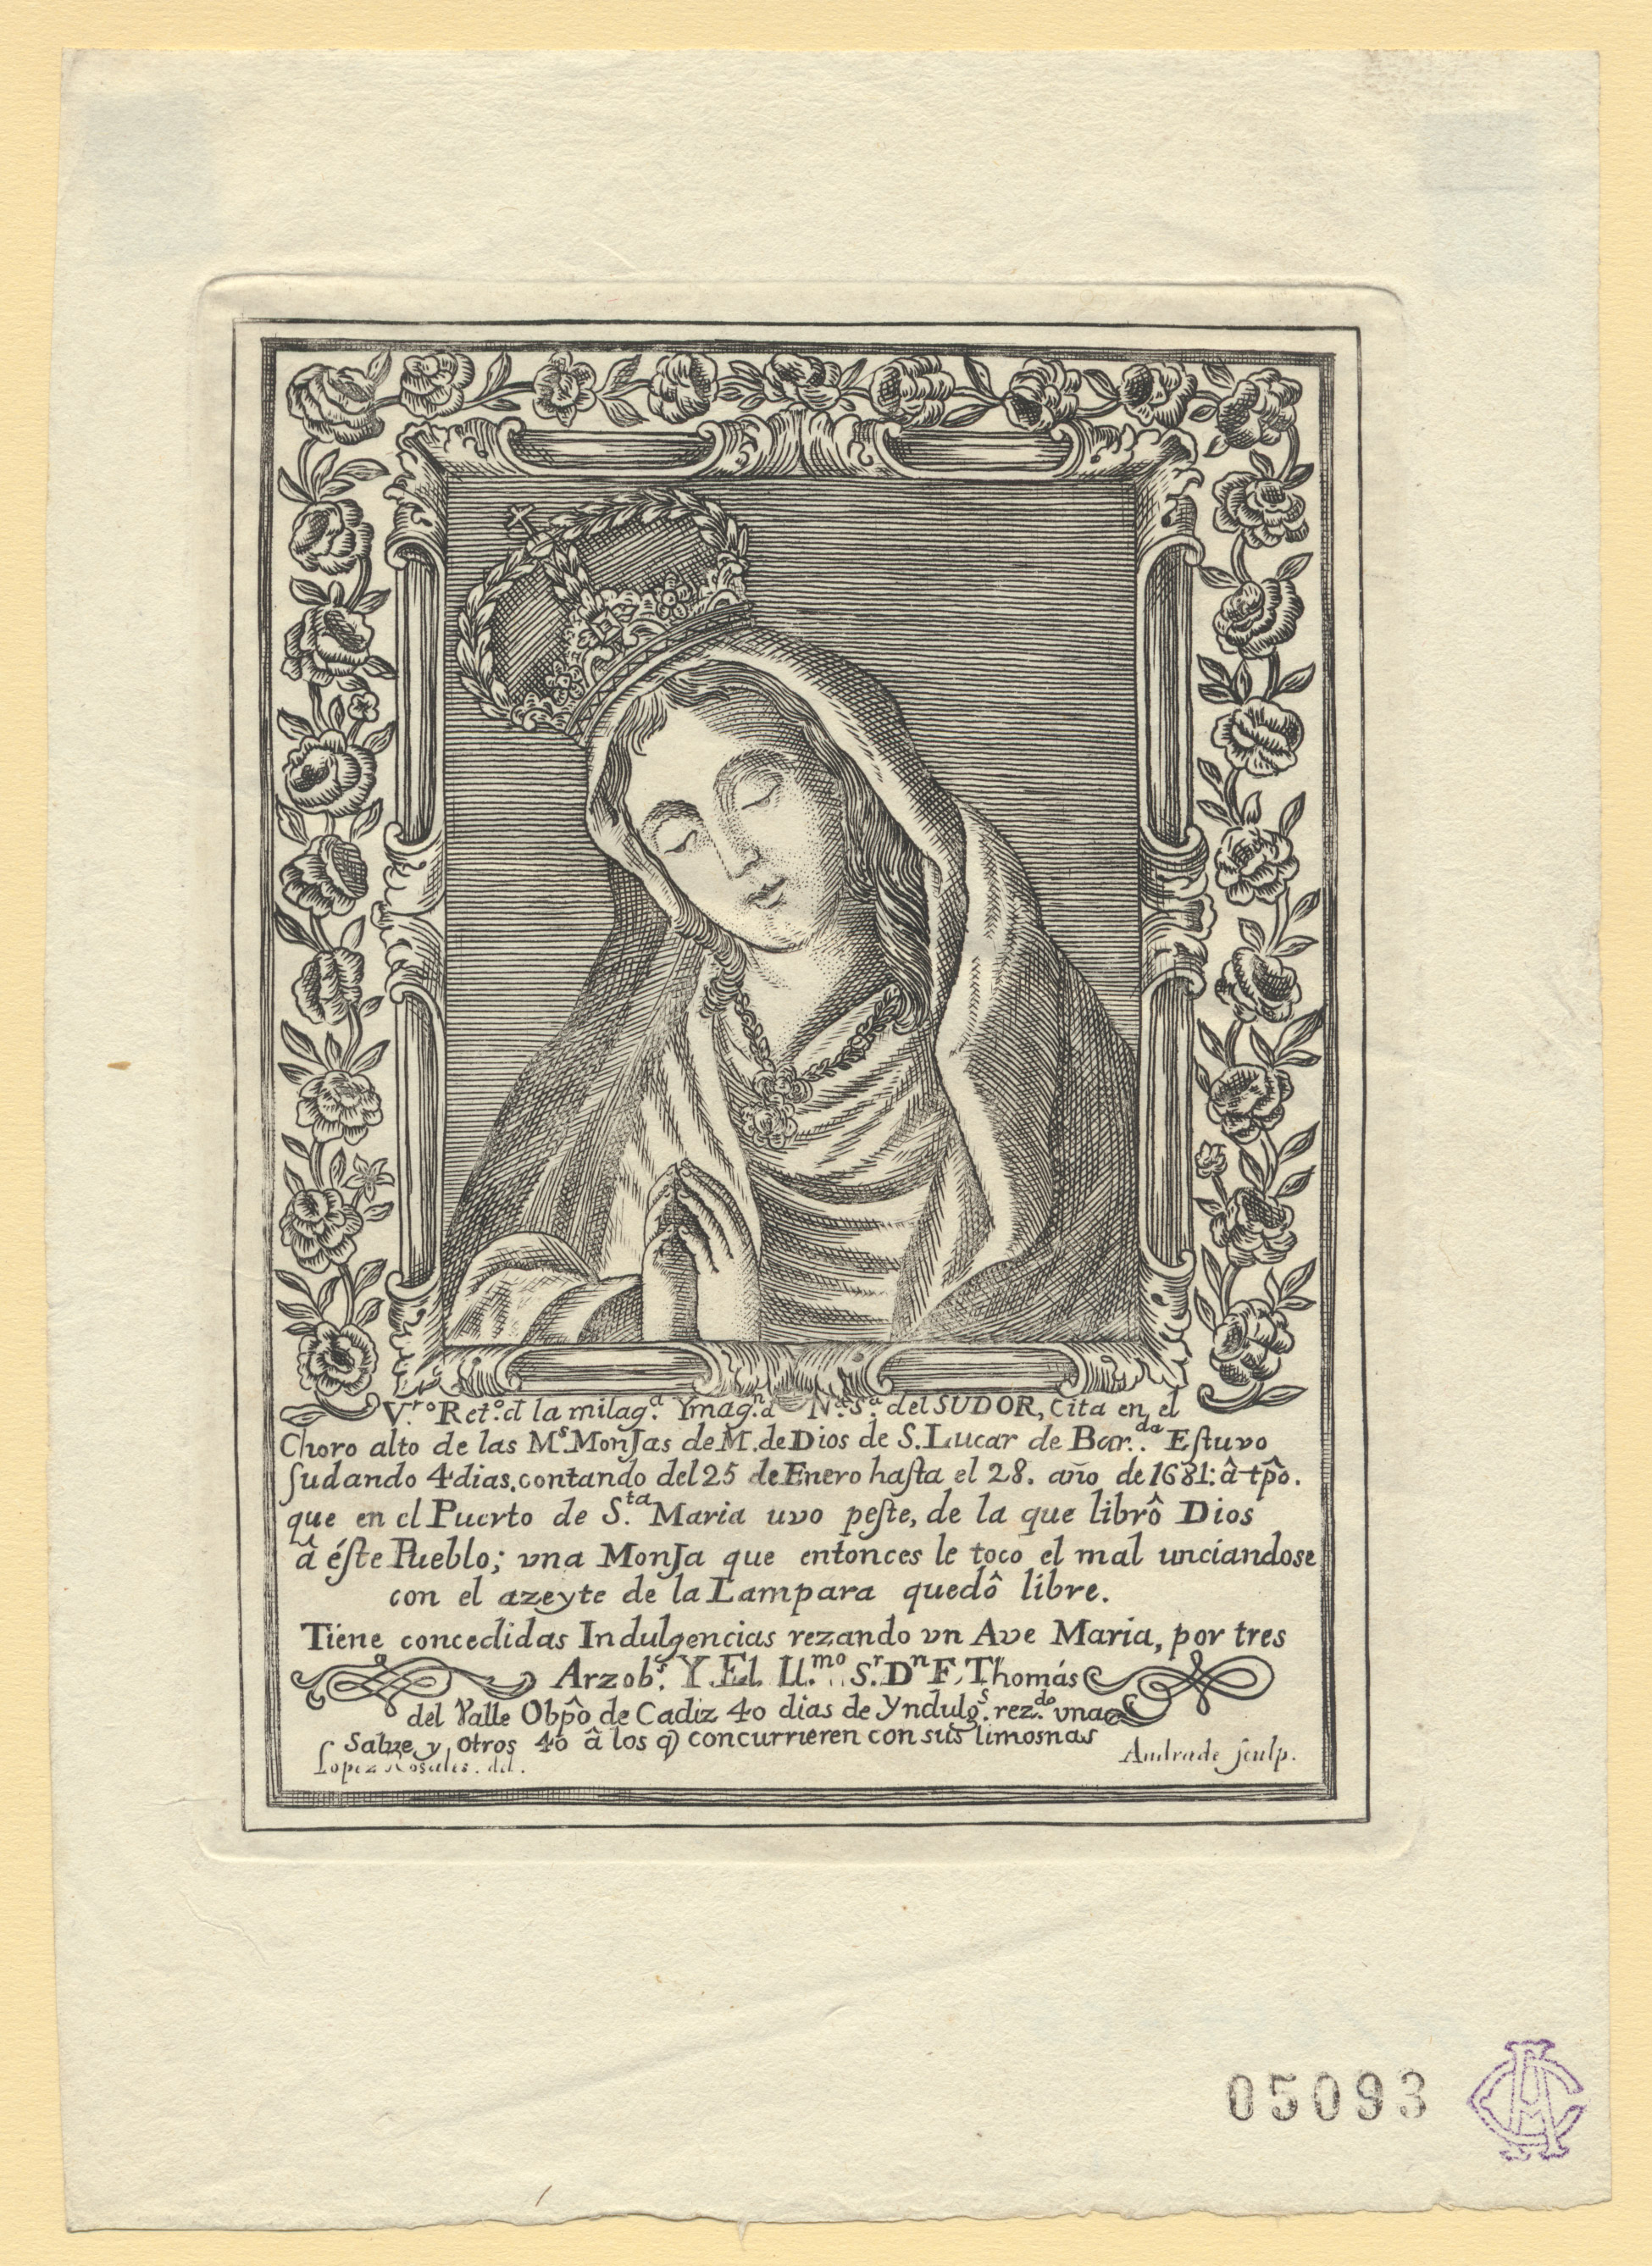 V.ʳᵒ Ret.º đ la milag.ª Ymag.ⁿ d N.ª S.ª del SUDOR, Cita en el
Choro alto de las M.ˢ MonJas de M. de Dios de S. Lucar de Bar.ᵈᵃ Eſtuvo
ſudando 4 dias, contando del 25 de Enero haſta el 28. año de 1681: â tp̂o.
que en el Puerto de S.ᵗᵃ Maria uvo peſte, de la que librô Dios
â éſte Pueblo; vna MonJa que entonces le toco el mal unciandose
con el azeyte de la Lampara quedô libre.
Tiene concedidas Indulgencias rezando vn Ave Maria, por tres
Arzob.ˢ Y El Il.ᵐᵒ S.ʳ Dⁿ F. Thomás
del Valle Obp̂o de Cadiz 40 dias de Yndulg.ˢ rez.ᵈᵒ vna
Salve y otros 40 â los q̃ concurrieren con sus limosnas
Lopez Rosales. del.
Andrade ſculp.
05093